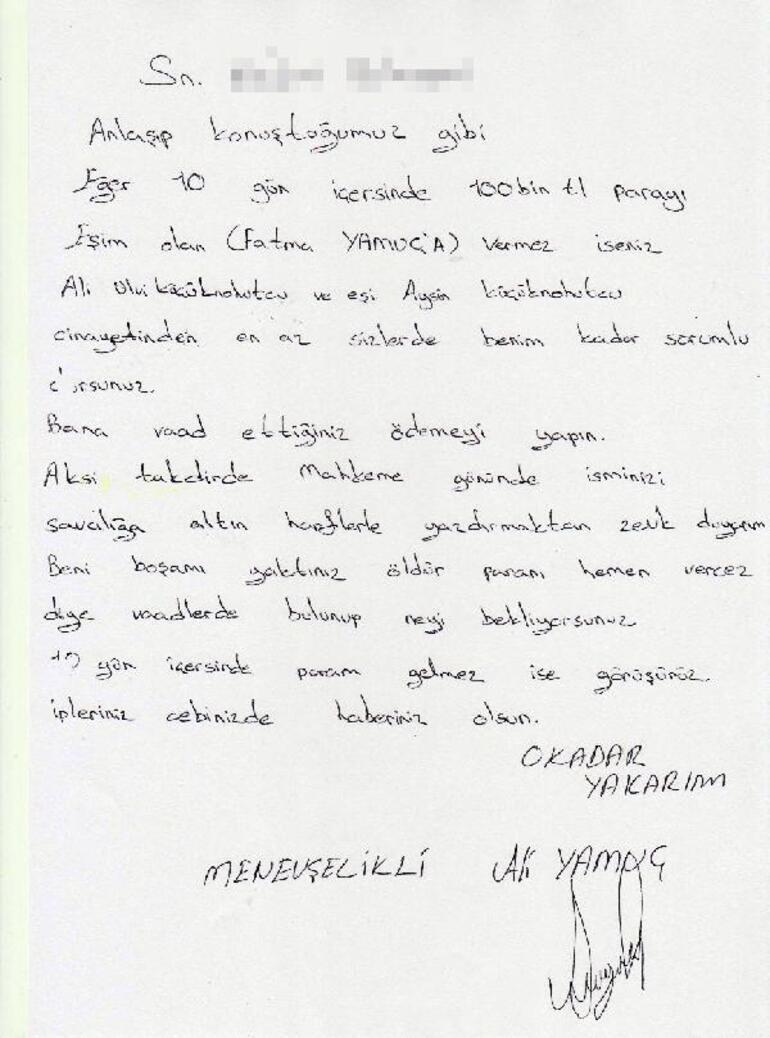 Sn.
Anlaşıp konuştoğumuz gibi
Eğer 10 gün içersinde 100bin tl parayı
Eşim olan (Fatma YAMUÇ'A) vermez iseniz
Ali Ulvi küçüknohutcu ve eşi Aysin küçüknohutcu
cinayetinden en az sizlerde benim kadar sorumlu
olursunuz.
Bana vaad ettiğiniz ödemeyi yapın.
Aksi takdirde Mahkeme gününde isminizi
savcılığa altın harflerle yazdırmaktan zevk duyarım
Beni boşamı yaktınız öldür paranı hemen vercez
diye vaadlerde bulunup neyi bekliyorsunuz
10 gün içersinde param gelmez ise görüşürüz.
ipleriniz cebinizde haberiniz olsun.
OKADAR
YAKARIM
MENEVŞELİKLİ Ali YAMUÇ